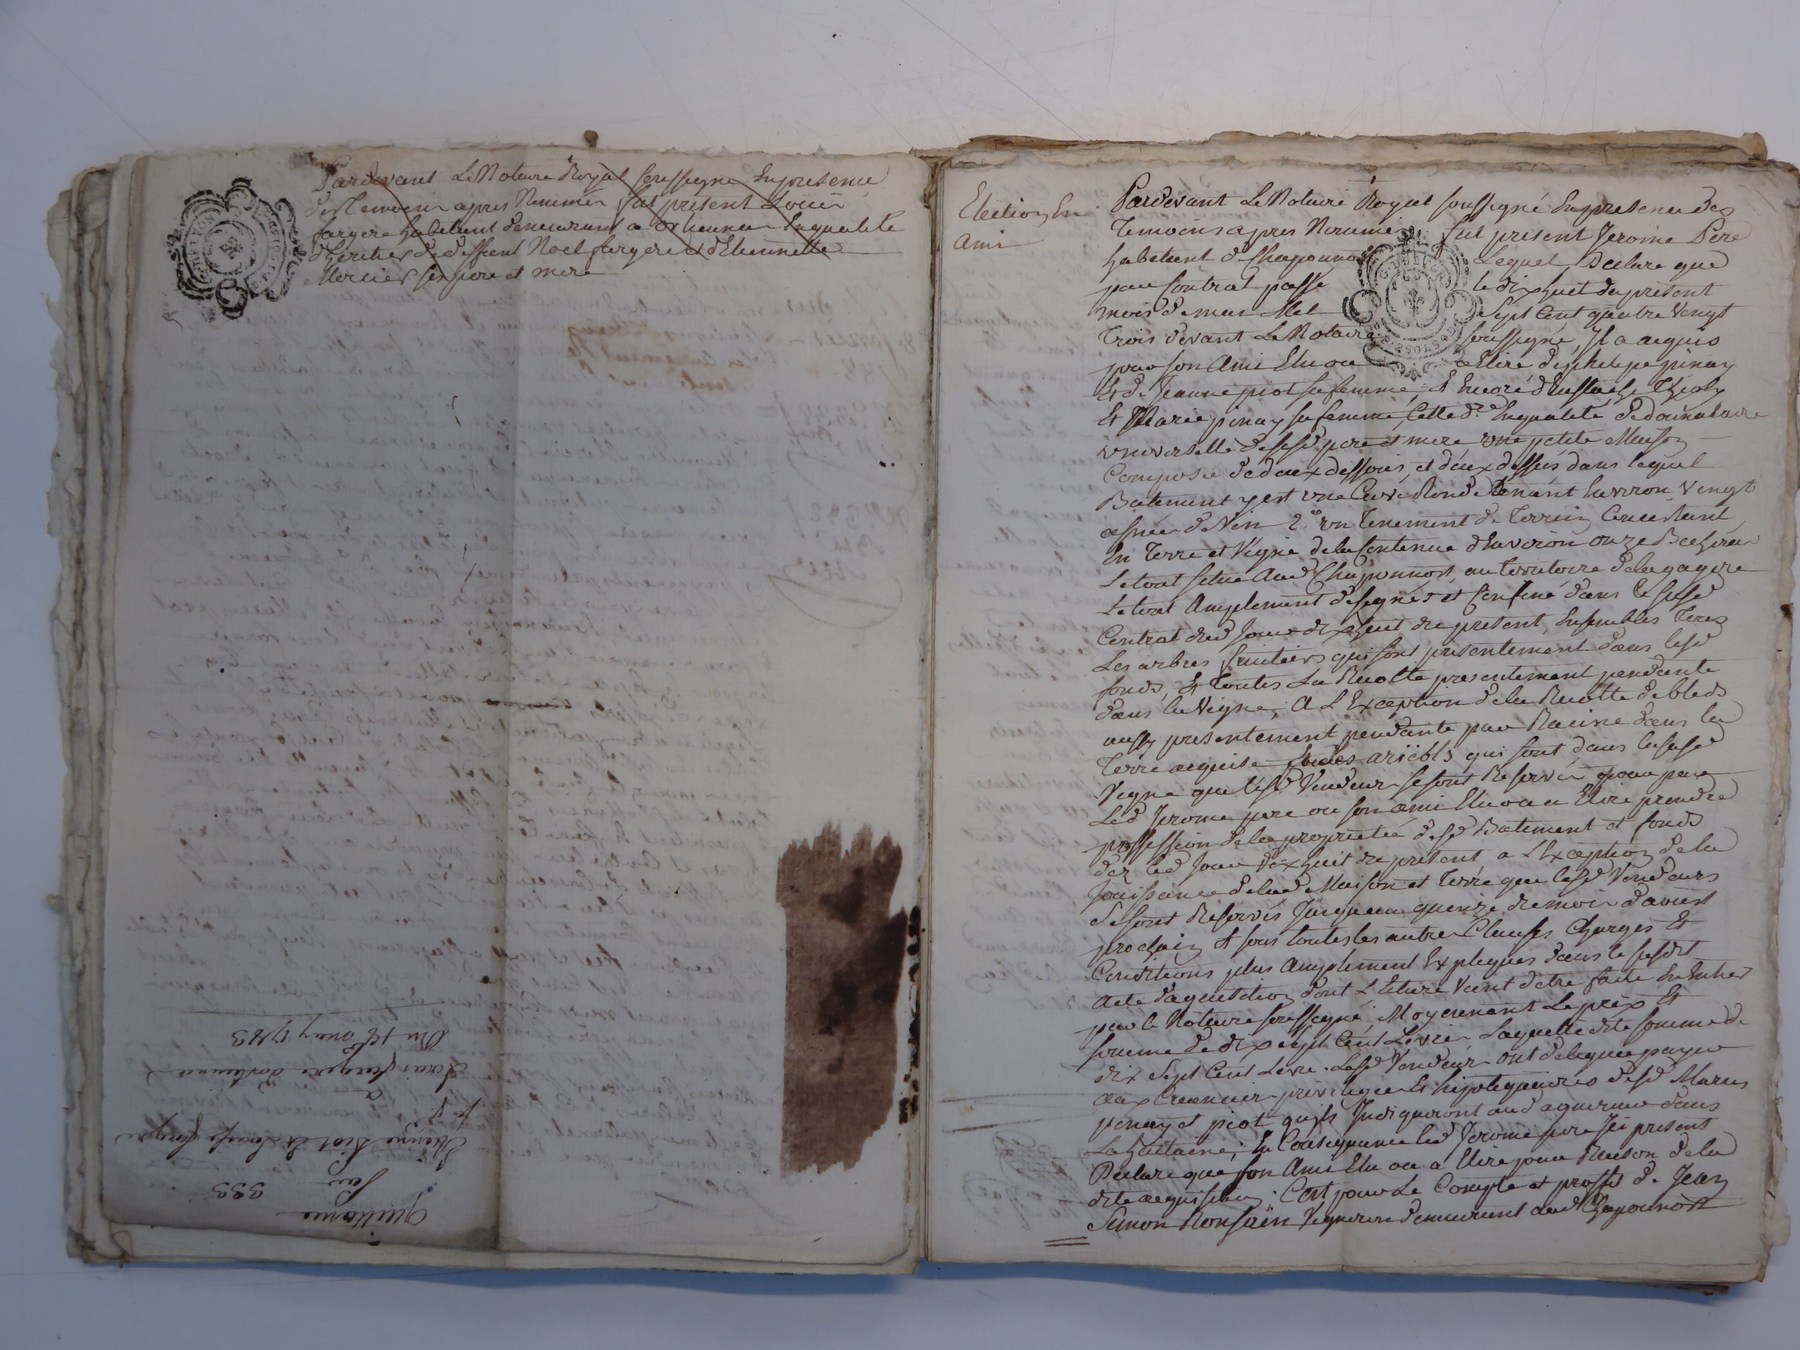 Pardevant Le Notaire Royal soussigné En presence
des Temoins apres Nommés fut present Louis
fargere habitant demeurant a orlienas En qualité
d'heritier de deffunt Noel fargere et d'Etiennette
Mercier ses pere et mere
quittance 333
par
Etienne Piot
a
Louis fargere d'orlienas
Du 18 may 1783
Election En
Ami
Pardevant Le Notaire Royal soussigné En presence des
Temoins apres Nommés fut present Jerome Pere
habitant de Chaponnost Lequel Declare que
par Contrat passé le dix huit du present
mois de mai Mil Sept Cent quatre Vingt
Trois devant Le Notaire soussigné, Il a acquis
pour son Ami Elu ou a Elire de philipe pinay
Et de Jeanne piot sa femme, Et Encore d'Eustache
Et Marie pinay sa femme, Cette d.e En qualité de donnataire
universelle de sesd. pere et mere une petite Maison
Composée de deux dessous, et deux dessus dans lequel
Batiment y est une Cuve Ronde tenant Environ Vingt
asnées de Vin 2.o un Tenement de Terrein Consistant
En Terre et Vigne de la Contenue d'Environ onze Bicherées
Le tout situé Aud. Chaponnost, au territoire de la gagere
Le tout Amplement designés et Confiné dans le susd.
Contrat dud. Jour dix huit du present, Ensembles Tous
Les arbres fruitiers qui sont presentement dans lesd.
fonds, Et Toutes La Recolte presentement pendante
dans la Vigne, A L'Exception de la Recolte de bleds
aussy presentement pendante par Racine dans la
Terre acquise des aricots qui sont dans lasusd.
Vigne que lesd. Vendeurs se sont Reservés, pour par
Led. Jerome pere ou son ami Elu ou a Elire prendre
possession de la proprietée desd. Batiment et fonds
dez led. Jour dix huit du present, a L'Exception de la
Jouissance de lad. Maison et Terre que lesd. Vendeurs
se sont Reservés Jusques au quinze du mois d'aoust
prochain Et sous toutes les autres Clauses Charges Et
Conditions plus Amplement Expliqués dans le susdit
acte d'aquisition dont Lecture Vient d'etre faite En Entier
par le Notaire soussigné, Moyennant Le prix Et
somme de dix sept Cent Livres Laquelle dite somme de
dix Sept Cent Livre Lesd. Vendeurs ont delegué payer
aux Creanciers privilegiés Et hipotequaires desd. Maries
pinay et piot qu'ils Indiqueront aud. aquereur dans
La huitaine; En Consequence led. Jerome pere Icy present
Declare que son Ami Elu ou a Elire pour Raison de la
dite acquisition; C'est pour Le Compte et proffit de Jean
Simon Vigneron demeurant aud. Chaponnost